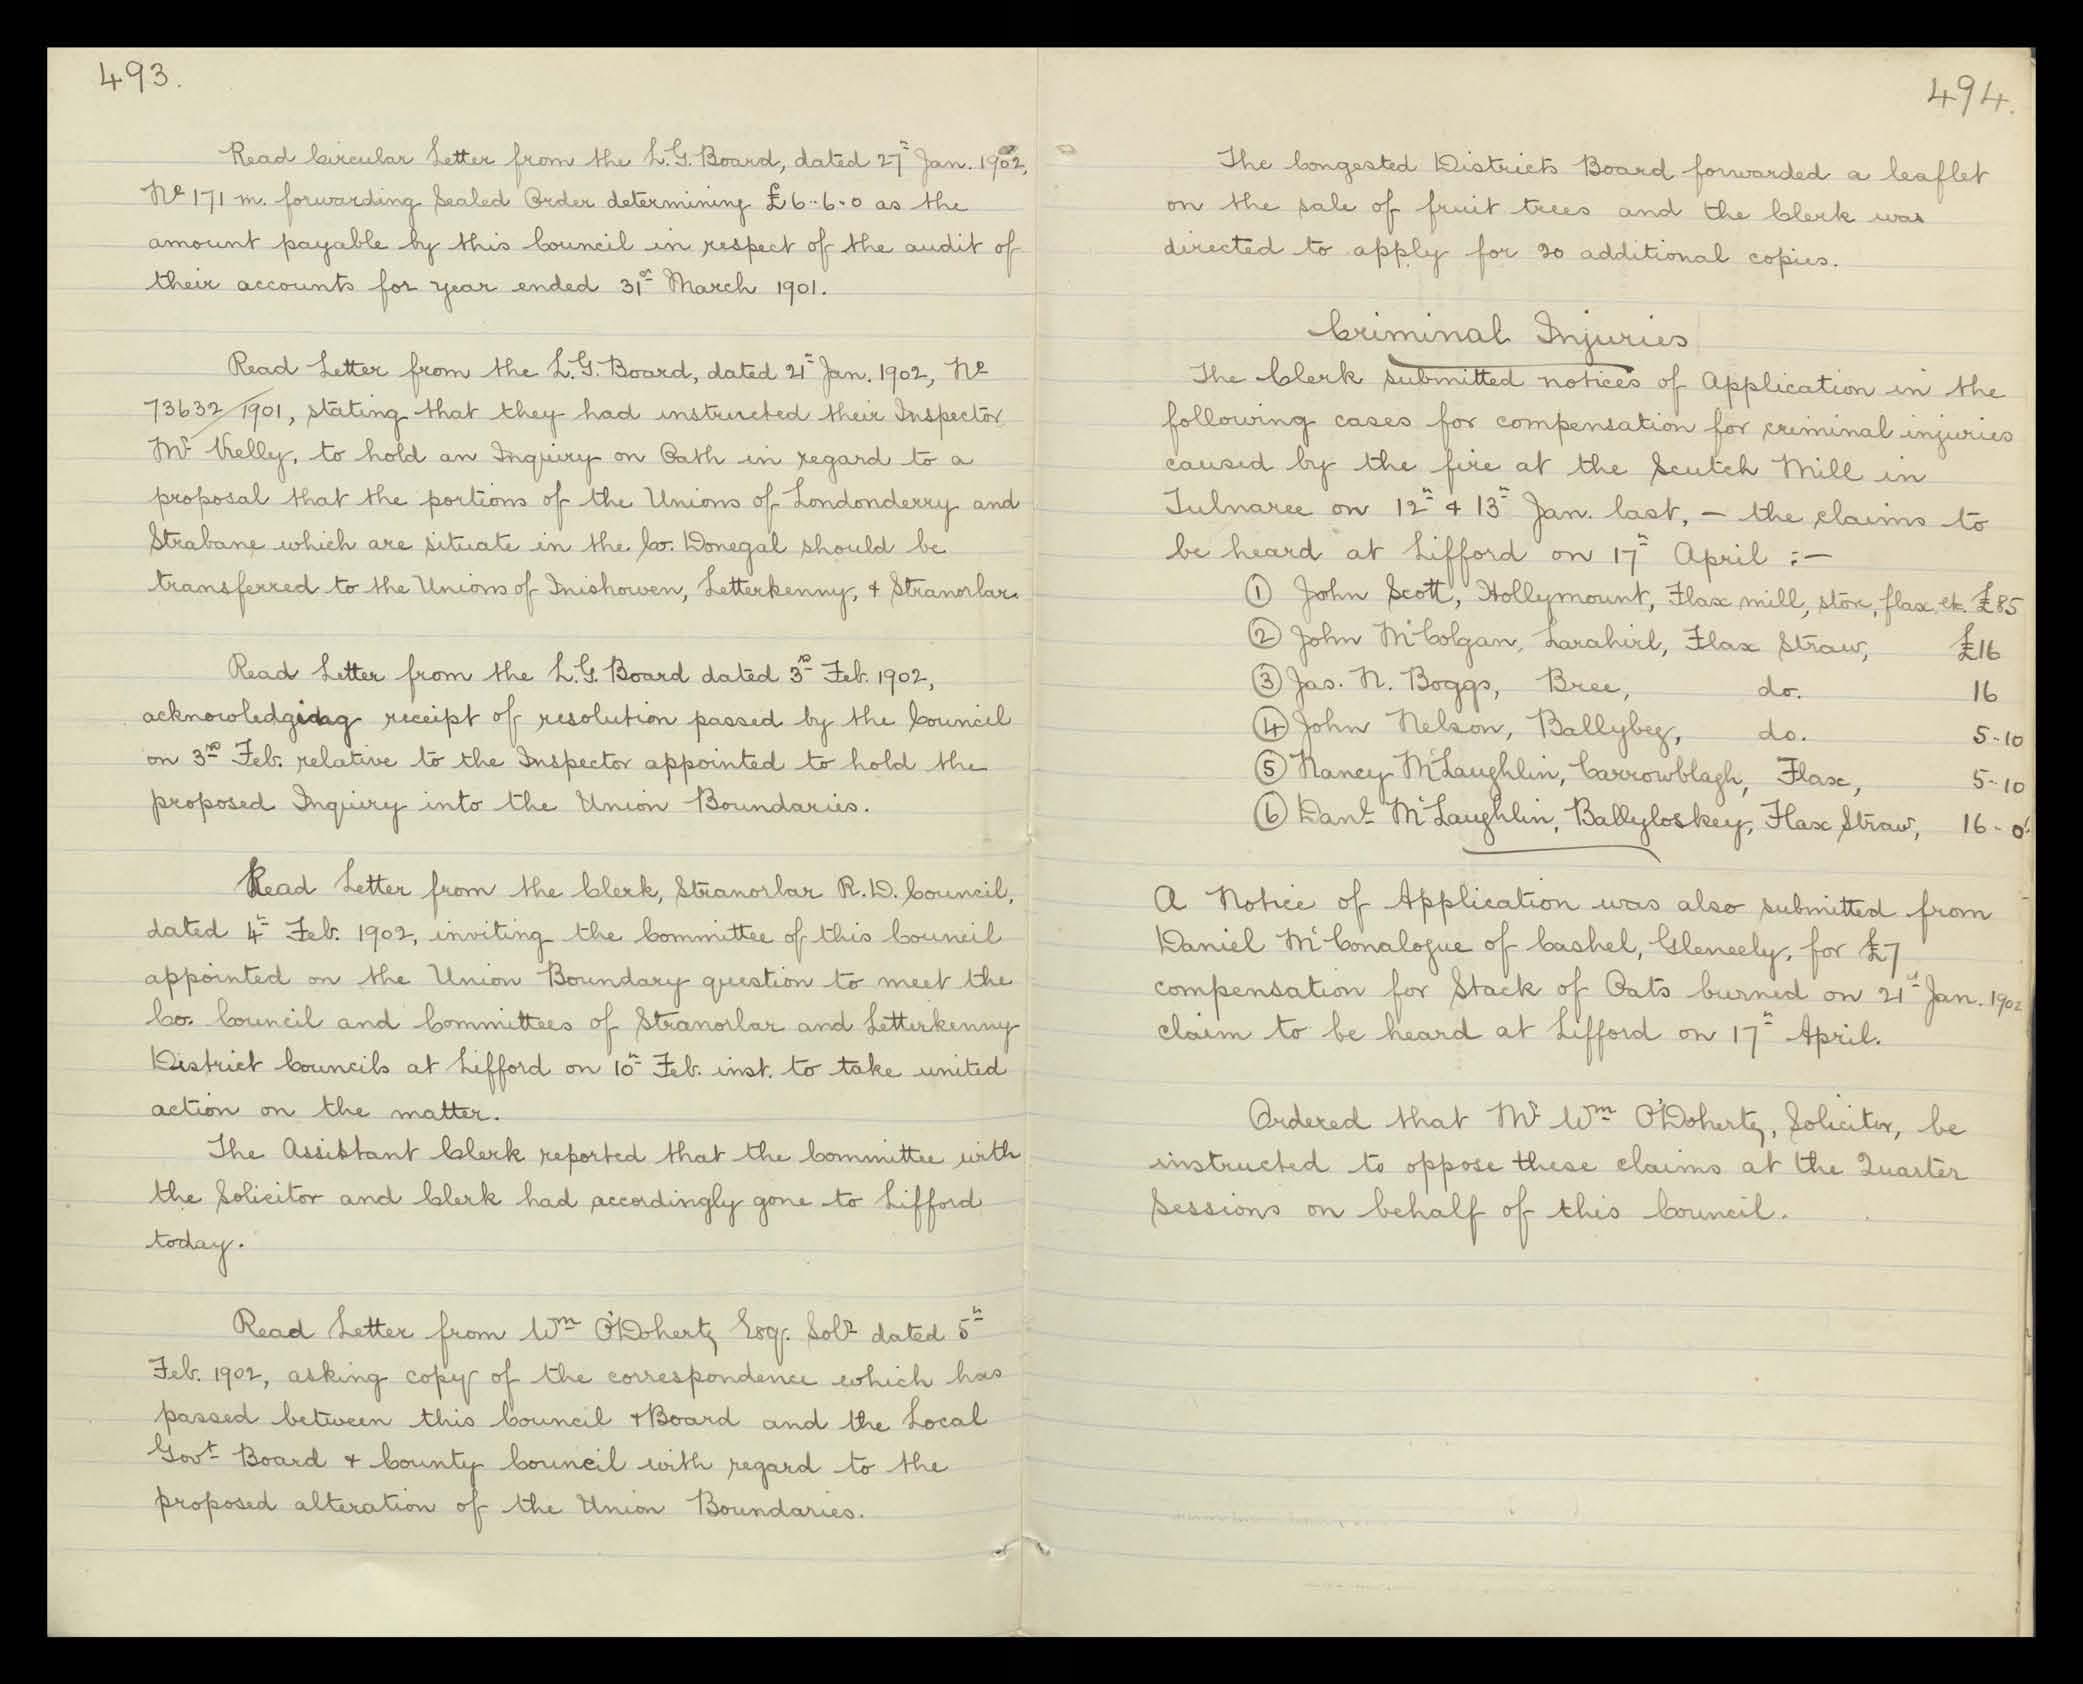 493.
Read Circular Letter from the L.G. Board, dated 27th Jan. 1902,
No 171 m. forwarding Sealed Order determining £6-6-0 as the
amount payable by this Council in respect of the audit of
their accounts for year ended 31st March 1901.
Read Letter from the L.G. Board, dated 21st Jan. 1902, No
73632/1901, stating that they had instructed their Inspector
Mr Kelly, to hold an Inquiry on Oath in regard to a
proposal that the portions of the Unions of Londonderry and
Strabane which are situate in the Co. Donegal should be
transferred to the Unions of Inishowen, Letterkenny, & Stranorlar.
Read Letter from the L.G. Board dated 3rd Feb. 1902,
acknowledging receipt of resolution passed by the Council
on 3rd Feb. relative to the Inspector appointed to hold the
proposed Inquiry into the Union Boundaries.
Read Letter from the Clerk, Stranorlar R.D. Council,
dated 4th Feb. 1902, inviting the Committee of this Council
appointed on the Union Boundary question to meet the
Co. Council and Committees of Stranorlar and Letterkenny
District Councils at Lifford on 10th Feb. inst. to take united
action on the matter.
The Assistant Clerk reported that the Committee with
the Solicitor and Clerk had accordingly gone to Lifford
today.
Read Letter from Wm O'Doherty Esq. Solr dated 5th
Feb. 1902, asking copy of the correspondence which has
passed between this Council & Board and the Local
Govt Board & County Council with regard to the
proposed alteration of the Union Boundaries.
494.
The Congested Districts Board forwarded a leaflet
on the sale of fruit trees and the Clerk was
directed to apply for 20 additional copies.
Criminal Injuries
The Clerk submitted notices of Application in the
following cases for compensation for criminal injuries
caused by the fire at the Scutch Mill in
Tulnaree on 12th & 13th Jan. last, – the claims to
be heard at Lifford on 17th April :–
① John Scott, Hollymount, Flax mill, store, flax, etc. £85
② John McColgan, Larahirl, Flax Straw, £16
③ Jas. N. Boggs, Bree, do. 16
④ John Nelson, Ballybeg, do. 5-10
⑤ Nancy McLaughlin, Carrowblagh, Flax, 5-10
⑥ Danl McLaughlin, Ballyloskey, Flax Straw, 16-0
A Notice of Application was also submitted from
Daniel McConalogue of Cashel, Gleneely, for £7
compensation for Stack of Oats burned on 21st Jan. 1902
claim to be heard at Lifford on 17th April.
Ordered that Mr Wm O'Doherty, Solicitor, be
instructed to oppose these claims at the Quarter
Sessions on behalf of this Council.